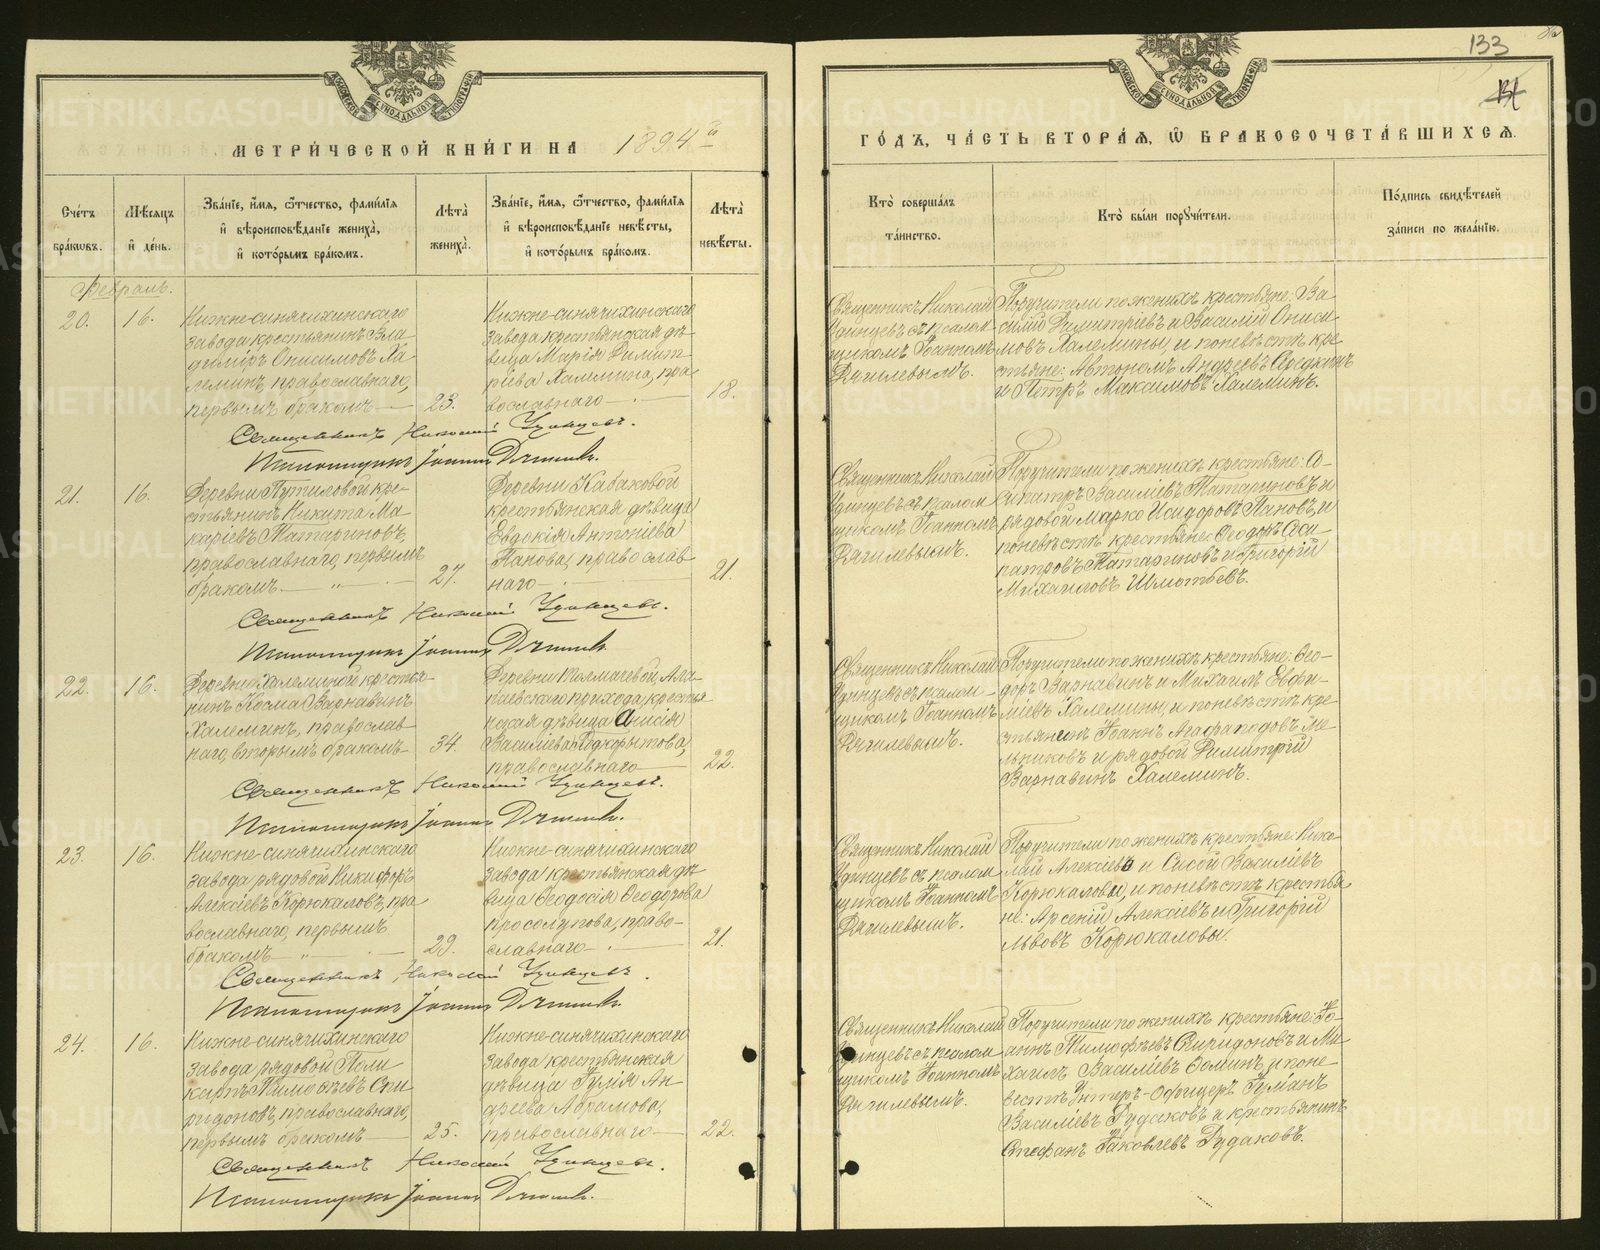 133
МОСКОВСКОЙ СѴНОДАЛЬНОЙ ТИПОГРАФІИ
МОСКОВСКОЙ СѴНОДАЛЬНОЙ ТИПОГРАФІИ
МЕТРИ́ЧЕСКОЙ КНИ́ГИ НА 1894 й
ГО́ДЪ, ЧА́СТЬ ВТОРА́Я, Ѿ БРАКОСОЧЕТА́ВШИХСЯ.
Сче́тъ бра́кѡвъ.
Мѣ́сяцъ и҆ де́нь.
Зва́нїе, и҆́мя, ѻ҆́тчество, фами́лїя
и҆ вѣроисповѣ́данїе жениха̀,
и҆ кото́рымъ бра́комъ.
Лѣта̀ жениха̀.
Зва́нїе, и҆́мя, ѻ҆́тчество, фами́лїя
и҆ вѣроисповѣ́данїе невѣ́сты,
и҆ кото́рымъ бра́комъ.
Лѣта̀ невѣ́сты.
Кто̀ соверша́лъ та́инство.
Кто̀ бы́ли порꙋчи́тели.
По́дпись свидѣ́телей за́писи по жела́нїю.
Февраль.
20.
16.
Нижне-синячихинскаго
завода крестьянинъ Вла
димiръ Онисимовъ Ха
леминъ, православнаго,
первымъ бракомъ
23.
Нижне-синячихинскаго
завода крестьянская дѣ
вица Марія Димит
ріева Халемина, пра
вославнаго
18.
Священникъ Николай
Удинцевъ съ псалом
щикомъ Іоанномъ
Дягилевымъ.
Поручители по женихѣ крестьяне: Ва
силій Димитріевъ и Василій Ониси
мовъ Халемины, и по невѣстѣ кре
стьяне: Автономъ Андреевъ
и Петръ Максимовъ Халеминъ.
Священникъ Николай Удинцевъ.
Псаломщикъ Іоаннъ Дягилевъ.
21.
16.
Деревни Путиловой кре
стьянинъ Никита Ма
каріевъ Татариновъ,
православнаго, первымъ
бракомъ
27.
Деревни Кабаковой
крестьянская дѣвица
Евдокія Антоніева
Панова, православ
наго
21.
Священникъ Николай
Удинцевъ съ псалом
щикомъ Іоанномъ
Дягилевымъ.
Поручители по женихѣ крестьяне: О-
сипатръ Василіевъ Татариновъ и
рядовой Марко Исидоровъ Пановъ, и
по невѣстѣ крестьяне: Ѳеодоръ Оси
патровъ Татариновъ и Григорій
Михаиловъ Шмотьевъ.
Священникъ Николай Удинцевъ.
Псаломщикъ Іоаннъ Дягилевъ.
22.
16.
Деревни Халеминой крестья
нинъ Косма Варнавинъ
Халеминъ, православ
наго, вторымъ бракомъ
34.
Деревни Толмачевой, Ала
паевскаго прихода, крестья
нская дѣвица Анисія
Василіева Подкорытова,
православнаго
22.
Священникъ Николай
Удинцевъ съ псалом
щикомъ Іоанномъ
Дягилевымъ.
Поручители по женихѣ крестьяне: Ѳео-
доръ Варнавинъ и Михаилъ Евфи-
міевъ Халемины, и по невѣстѣ кре
стьянинъ Іоаннъ Агафаподовъ Ме
льниковъ и рядовой Димитрій
Варнавинъ Халеминъ.
Священникъ Николай Удинцевъ.
Псаломщикъ Іоаннъ Дягилевъ.
23.
16.
Нижне-синячихинскаго
завода рядовой Никифоръ
Алексіевъ Корюкаловъ, пра
вославнаго, первымъ
бракомъ
29.
Нижне-синячихинскаго
завода крестьянская дѣ
вица Ѳеодосія Ѳеодорова
Просолупова, право-
славнаго
21.
Священникъ Николай
Удинцевъ съ псалом
щикомъ Іоанномъ
Дягилевымъ.
Поручители по женихѣ крестьяне: Нико
лай Алексіевъ и Сысой Василіевъ
Корюкаловы, и по невѣстѣ крестья
не: Арсеній Алексіевъ и Григорій
Львовъ Корюкаловы.
Священникъ Николай Удинцевъ.
Псаломщикъ Іоаннъ Дягилевъ.
24.
16.
Нижне-синячихинскаго
завода рядовой Поли
карпъ Тимоѳеевъ Спи
ридоновъ, православнаго,
первымъ бракомъ
25.
Нижне-синячихинскаго
завода крестьянская
дѣвица Іулія Ан
дреева Абрамова,
православнаго
22.
Священникъ Николай
Удинцевъ съ псалом
щикомъ Іоанномъ
Дягилевымъ.
Поручители по женихѣ крестьяне: Іо-
аннъ Тимофѣевъ Спиридоновъ и Ми
хаилъ Василіевъ Ѳоминъ, и по не
вестѣ Унтеръ-Офицеръ
Василіевъ Рудаковъ и крестьянинъ
Стефанъ Іаковлевъ Рудаковъ.
Священникъ Николай Удинцевъ.
Псаломщикъ Іоаннъ Дягилевъ.
METRIKI.GASO-URAL.RU